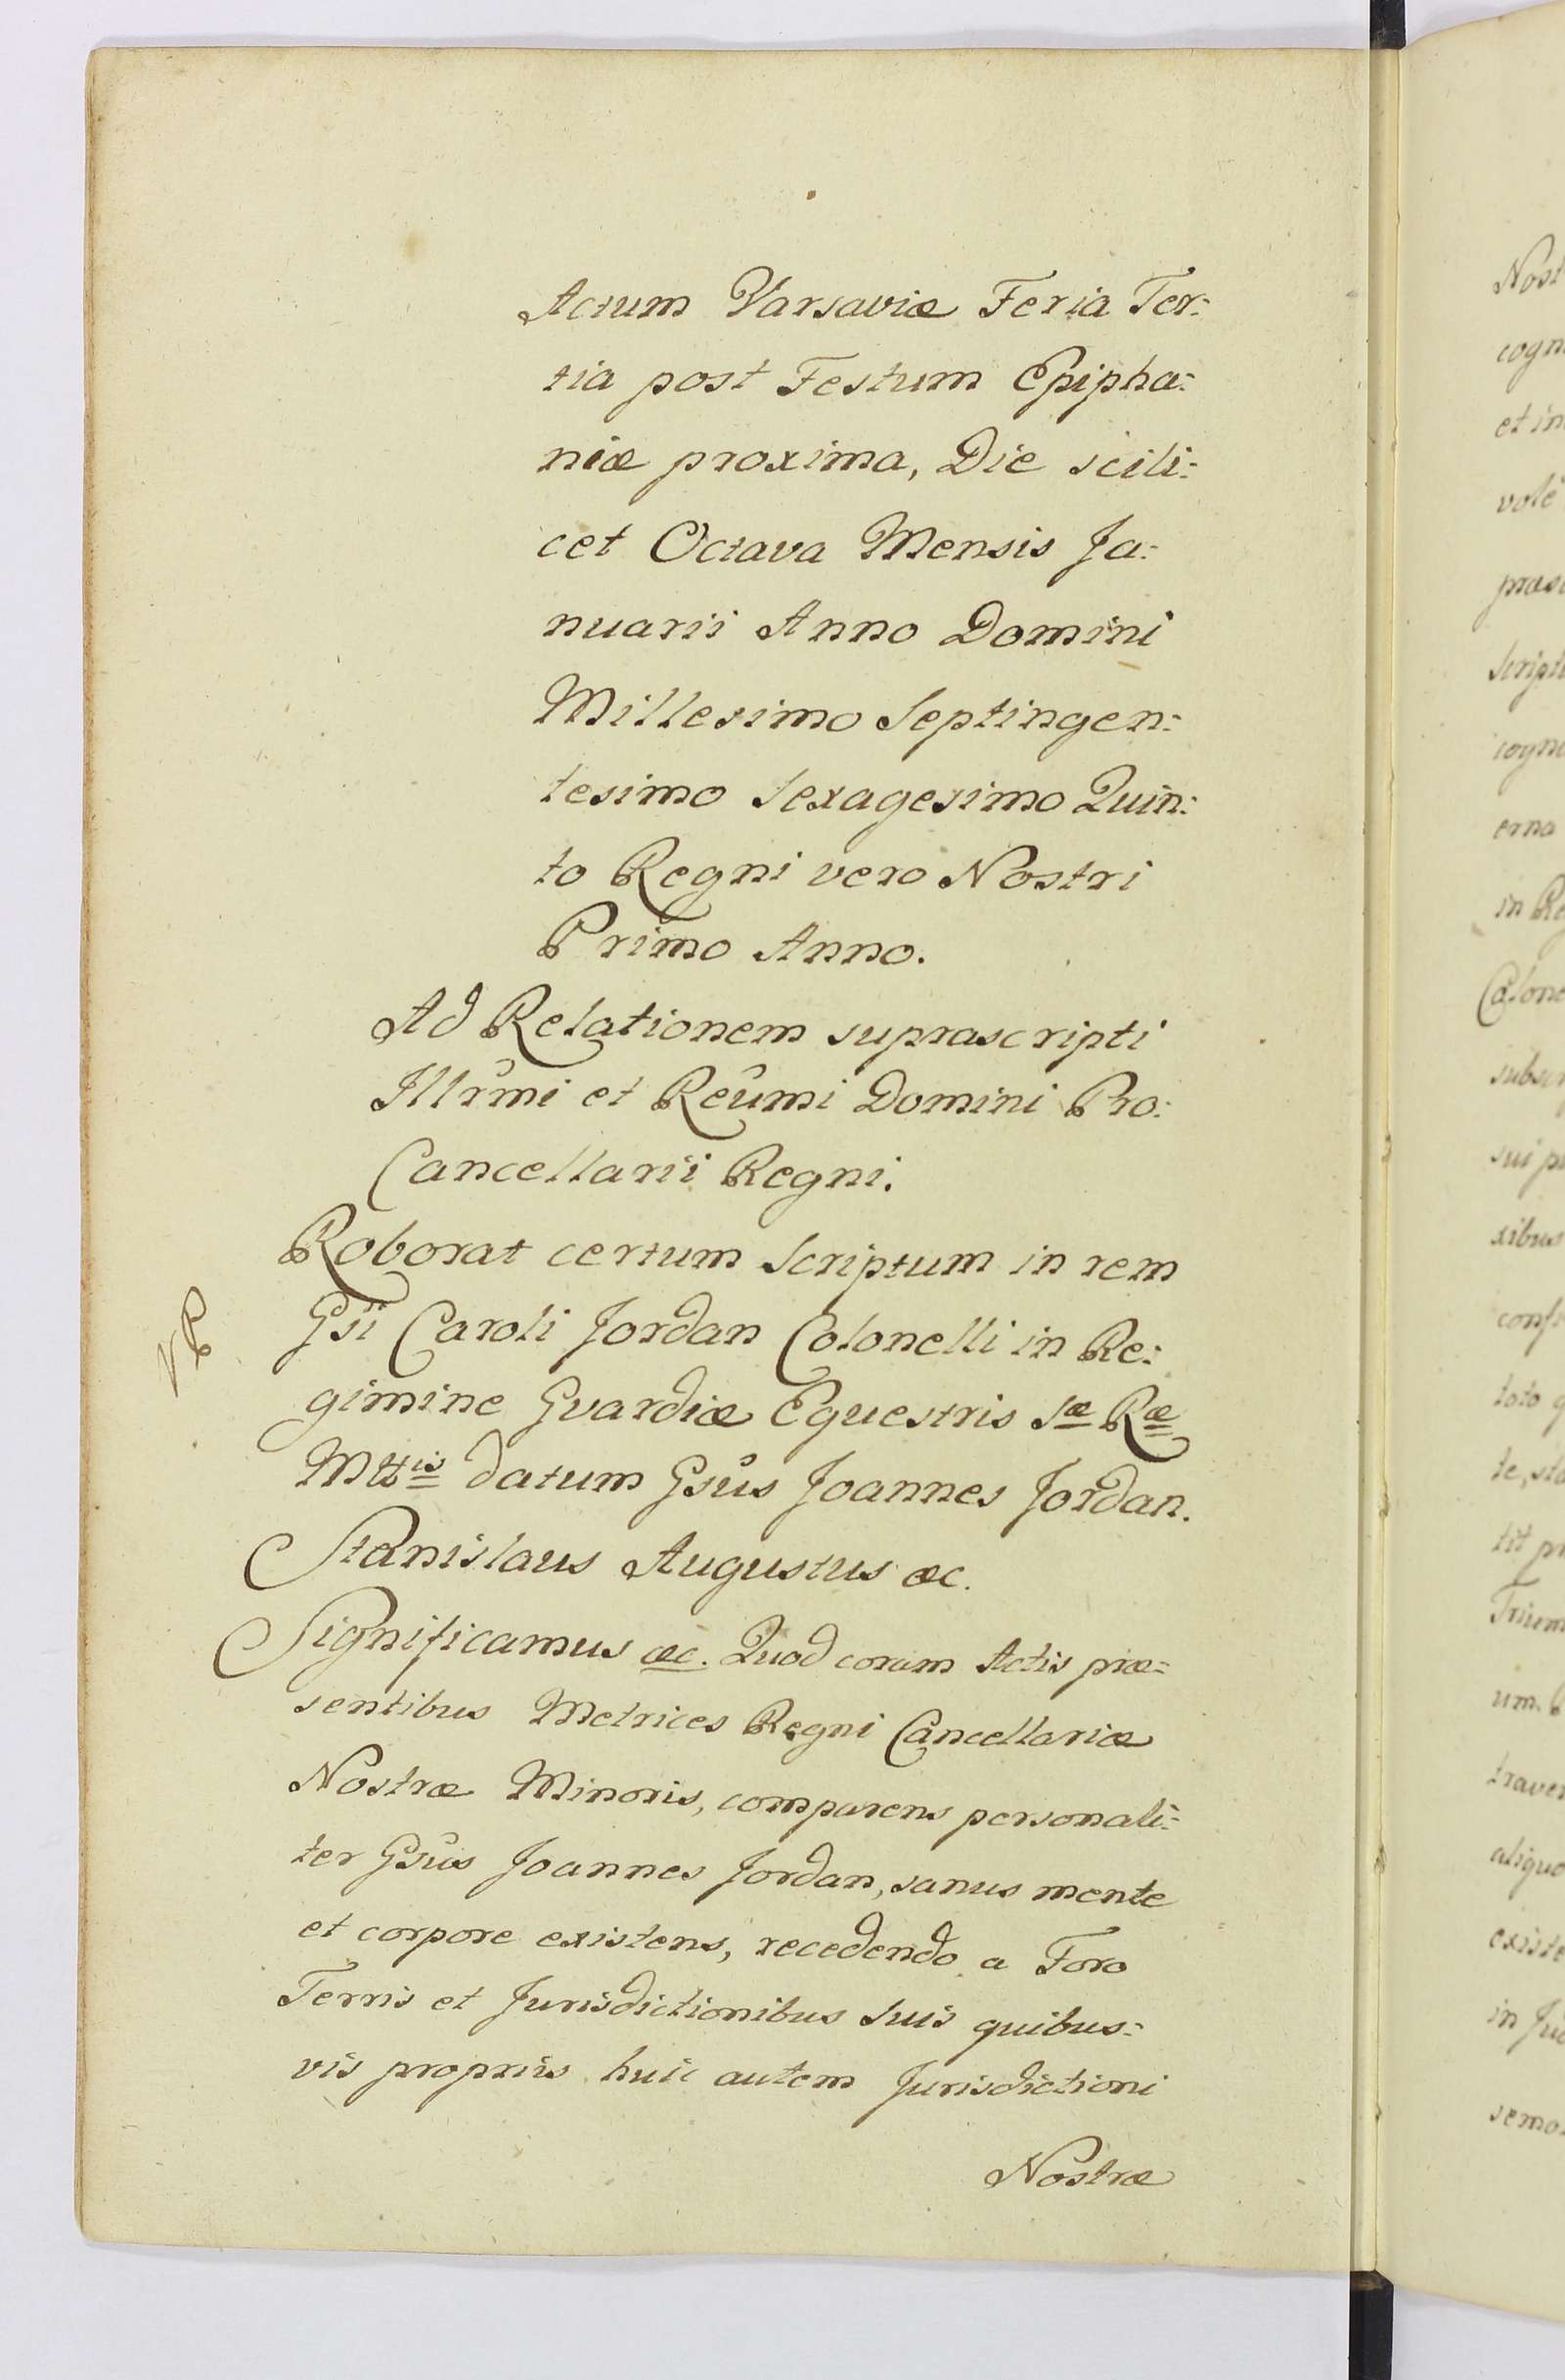 Actum Varsaviæ Feria Ter:
tia post Festum Epipha:
niæ proxima, Die scili:
cet Octava Mensis Ja:
nuarii Anno Domini
Millesimo Septingen:
tesimo Sexagesimo Quin:
to Regni vero Nostri
Primo Anno.
Ad Relationem suprascripti
Illrm̃i et Reũmi Domini Pro:
Cancellarii Regni.
Roborat certum Scriptum in rem
Gsi Caroli Jordan Colonelli in Re:
gimine Gvardiæ Equestris Sæ Ræ
Mttis datum Gsus Joannes Jordan.
Stanislaus Augustus æc.
Significamus æc. Quod coram Actis præ:
sentibus Metrices Regni Cancellariæ
Nostræ Minoris, comparens personali:
ter Gsus Joannes Jordan, sanus mente
et corpore existens, recedendo a Foro
Terris et Jurisdictionibus suis quibus:
vis propriis huic autem Jurisdictioni
Nostræ
Nost
cogn
et in
volé
scripti
cogni
erna
in Re
Colone
subscr
sui pr
xibus
toto q
tit pr
um.
aliquo
existe
in Ju
semo